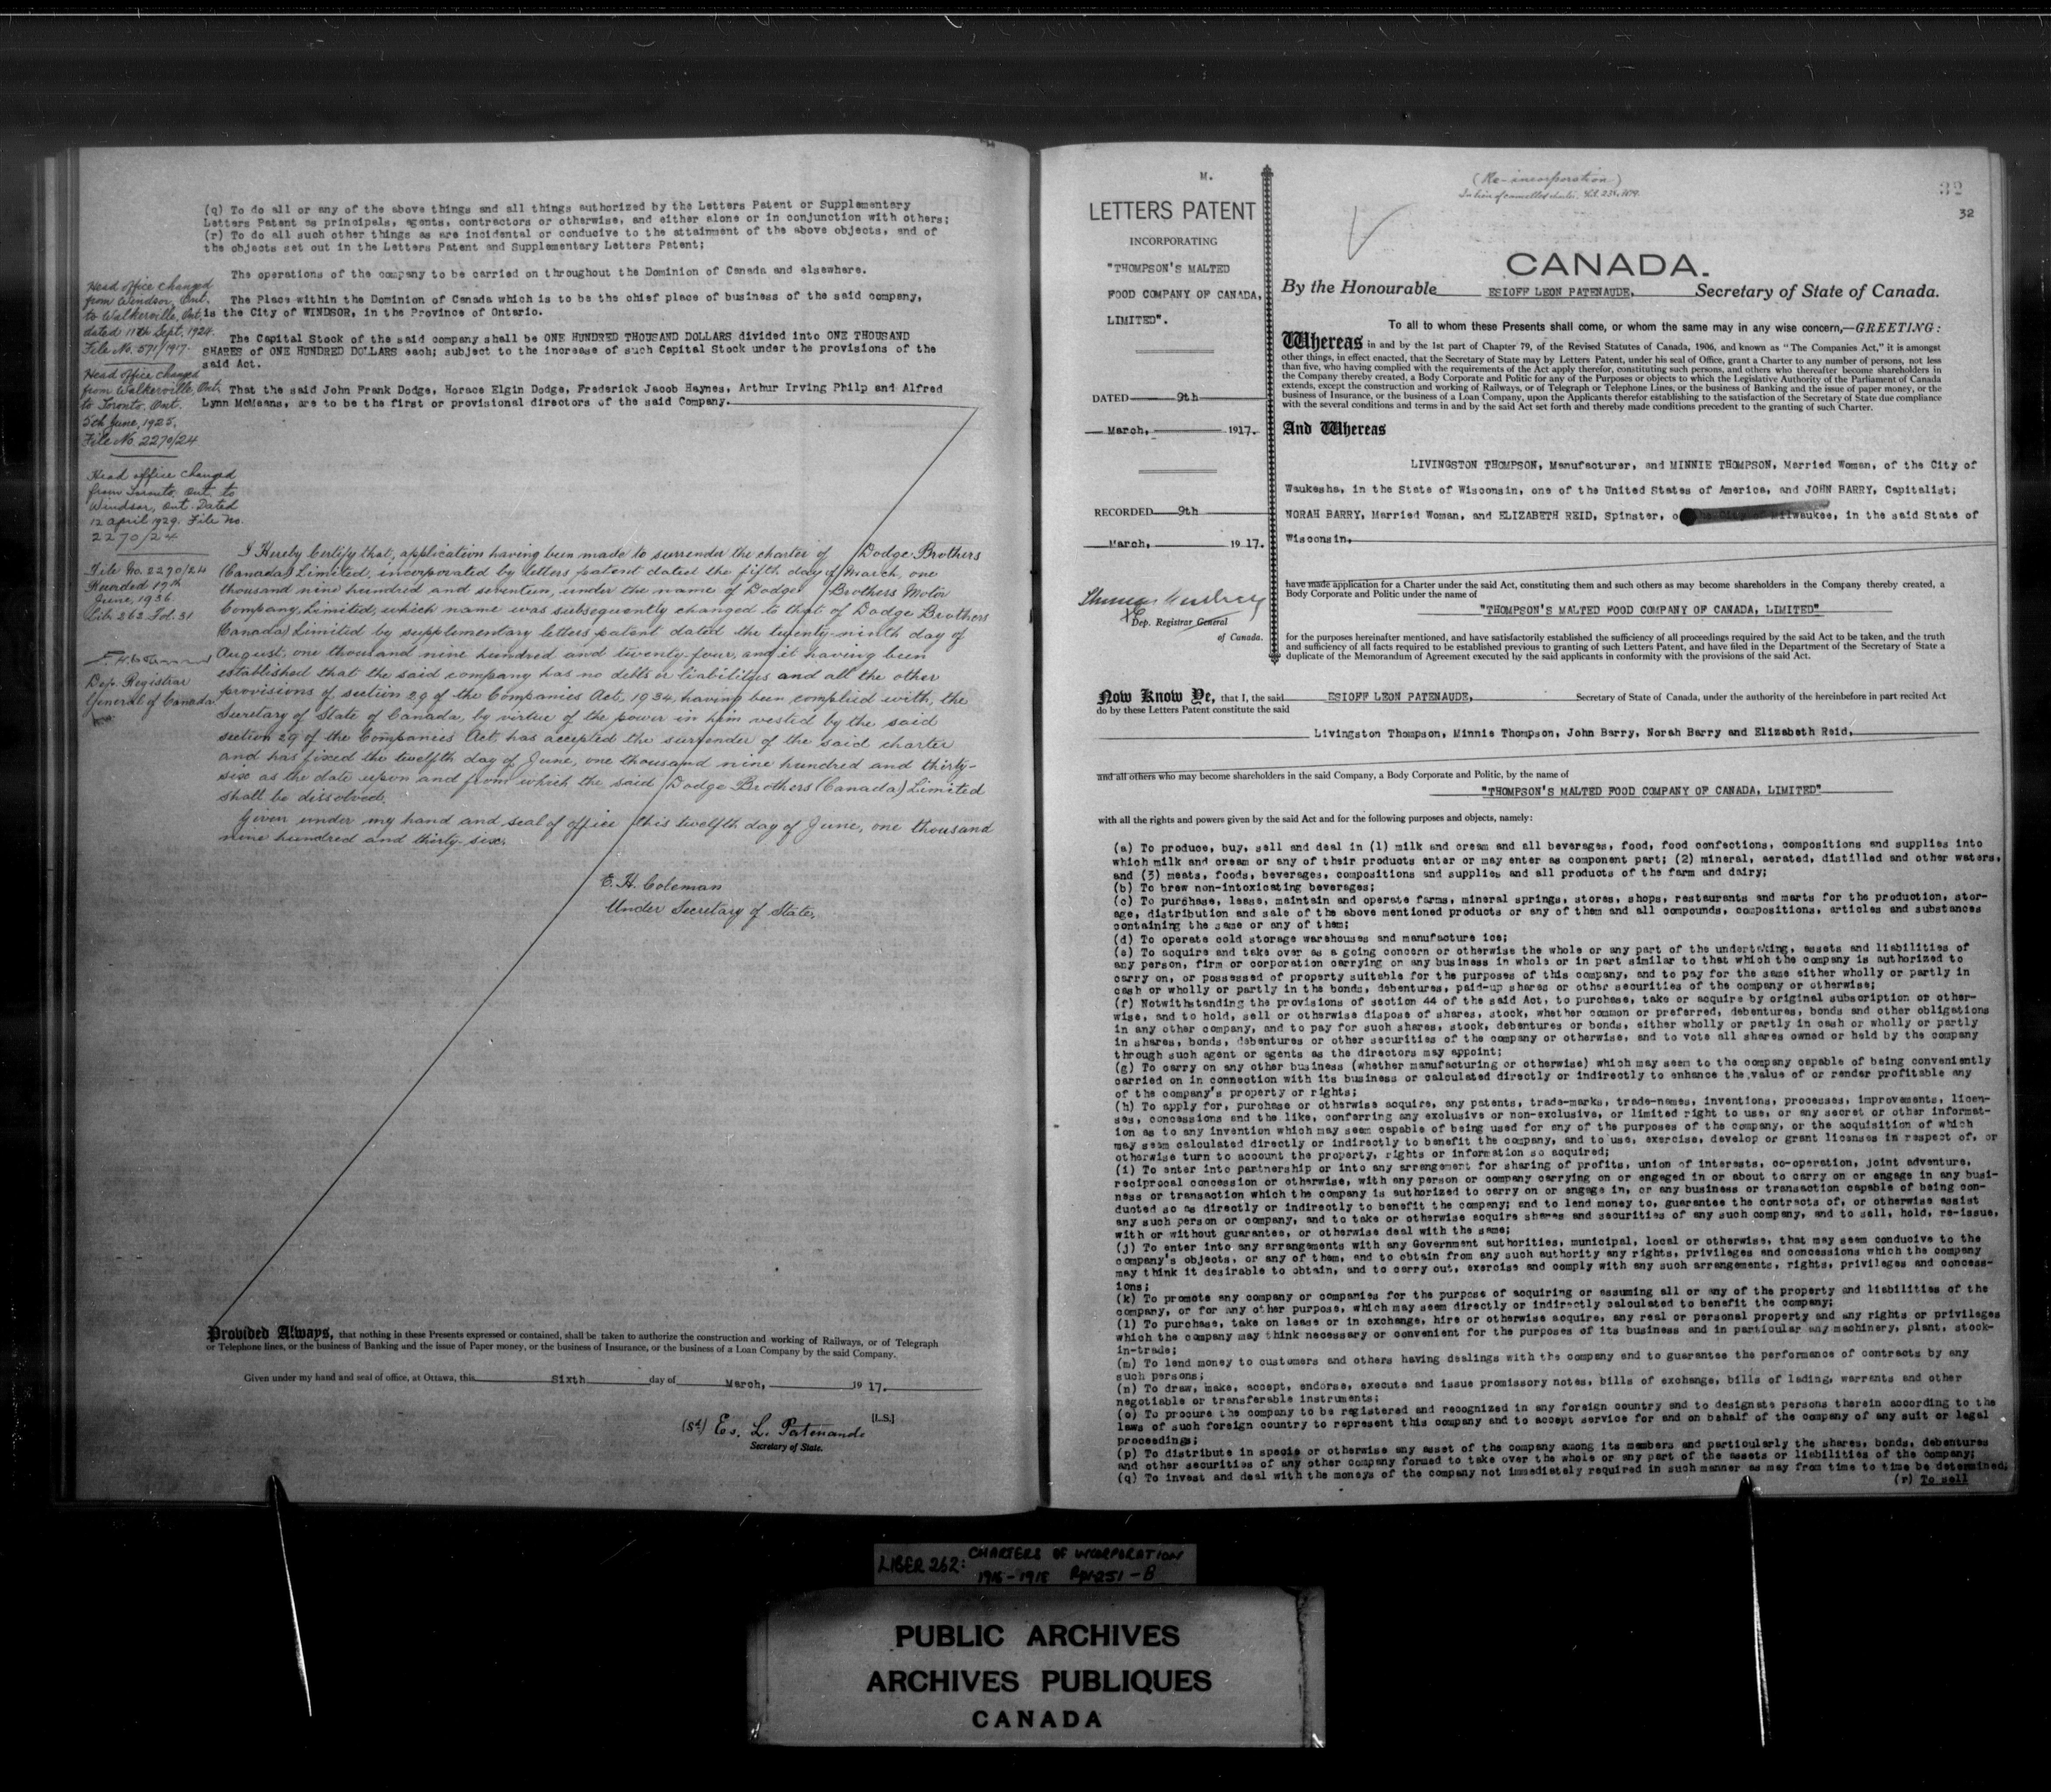 (q) To do all or any of the above things and all things authorized by the Letters Patent or Supplementary
Letters Patent as principals, agents, contractors or otherwise, and either alone or in conjunction with others;
(r) To do all such other things as are incidental or conducive to the attainment of the above objects, and of
the objects set out in the Letters Patent and Supplementary Letters Patent;
The operations of the company to be carried on throughout the Dominion of Canada and elsewhere.
The Place within the Dominion of Canada which is to be the chief place of business of the said company,
is the City of WINDSOR, in the Province of Ontario.
The Capital Stock of the said company shall be ONE HUNDRED THOUSAND DOLLARS divided into ONE THOUSAND
SHARES of ONE HUNDRED DOLLARS each; subject to the increase of such Capital Stock under the provisions of the
said Act.
That the said John Frank Dodge, Horace Elgin Dodge, Frederick Jacob Haynes, Arthur Irving Philp and Alfred
Lynn McMeans, are to be the first or provisional directors of the said Company.
Head office changed
from Windsor, Ont.
to Walkerville, Ont.
dated 11th Sept. 1924.
File No. 571/1917.
Head office changed
from Walkerville, Ont.
to Toronto, Ont.
5th June, 1925.
File No. 2270/24
Head office changed
from Toronto, Ont. to
Windsor, Ont. Dated
12 April 1929. File No.
2270/24
File No. 2270/24
Recorded 17th
June, 1936.
Lib. 262 Fol. 31
Dep. Registrar
General of Canada.
I Hereby Certify that, application having been made to surrender the charter of Dodge Brothers
(Canada) Limited, incorporated by letters patent dated the fifth day of March, one
thousand nine hundred and seventeen, under the name of Dodge Brothers Motor
Company, Limited, which name was subsequently changed to that of Dodge Brothers
(Canada) Limited by supplementary letters patent dated the twenty-ninth day of
August, one thousand nine hundred and twenty-four, and it having been
established that the said company has no debts or liabilities and all the other
provisions of section 29 of the Companies Act, 1934, having been complied with, the
Secretary of State of Canada, by virtue of the power in him vested by the said
section 29 of the Companies Act, has accepted the surrender of the said charter
and has fixed the twelfth day of June, one thousand nine hundred and thirty-
six as the date upon and from which the said Dodge Brothers (Canada) Limited
shall be dissolved.
Given under my hand and seal of office this twelfth day of June, one thousand
nine hundred and thirty-six.
E. H. Coleman
Under Secretary of State.
Provided Always, that nothing in these Presents expressed or contained, shall be taken to authorize the construction and working of Railways, or of Telegraph
or Telephone lines, or the business of Banking and the issue of Paper money, or the business of Insurance, or the business of a Loan Company by the said Company.
Given under my hand and seal of office, at Ottawa, this Sixth day of March, 1917.
(sd) Es. L. Patenaude [L.S.]
Secretary of State.
M.
LETTERS PATENT
INCORPORATING
"THOMPSON'S MALTED
FOOD COMPANY OF CANADA,
LIMITED".
DATED 9th
March, 1917.
RECORDED 9th
March, 1917.
Dep. Registrar General
of Canada.
(Re-incorporation)
In lieu of cancelled charter. Lib. 234,
32
32
CANADA.
By the Honourable ESIOFF LEON PATENAUDE, Secretary of State of Canada.
To all to whom these Presents shall come, or whom the same may in any wise concern,—GREETING:
Whereas in and by the 1st part of Chapter 79, of the Revised Statutes of Canada, 1906, and known as "The Companies Act," it is amongst
other things, in effect enacted, that the Secretary of State may by Letters Patent, under his seal of Office, grant a Charter to any number of persons, not less
than five, who having complied with the requirements of the Act apply therefor, constituting such persons, and others who thereafter become shareholders in
the Company thereby created, a Body Corporate and Politic for any of the Purposes or objects to which the Legislative Authority of the Parliament of Canada
extends, except the construction and working of Railways, or of Telegraph or Telephone Lines, or the business of Banking and the issue of paper money, or the
business of Insurance, or the business of a Loan Company, upon the Applicants therefor establishing to the satisfaction of the Secretary of State due compliance
with the several conditions and terms in and by the said Act set forth and thereby made conditions precedent to the granting of such Charter.
And Whereas
LIVINGSTON THOMPSON, Manufacturer, and MINNIE THOMPSON, Married Woman, of the City of
Waukesha, in the State of Wisconsin, one of the United States of America, and JOHN BARRY, Capitalist;
NORAH BARRY, Married Woman, and ELIZABETH REID, Spinster, of the City of Milwaukee, in the said State of
Wisconsin.
have made application for a Charter under the said Act, constituting them and such others as may become shareholders in the Company thereby created, a
Body Corporate and Politic under the name of
"THOMPSON'S MALTED FOOD COMPANY OF CANADA, LIMITED"
for the purposes hereinafter mentioned, and have satisfactorily established the sufficiency of all proceedings required by the said Act to be taken, and the truth
and sufficiency of all facts required to be established previous to granting of such Letters Patent, and have filed in the Department of the Secretary of State a
duplicate of the Memorandum of Agreement executed by the said applicants in conformity with the provisions of the said Act.
Now Know Ye, that I, the said ESIOFF LEON PATENAUDE, Secretary of State of Canada, under the authority of the hereinbefore in part recited Act
do by these Letters Patent constitute the said
Livingston Thompson, Minnie Thompson, John Barry, Norah Barry and Elizabeth Reid,
and all others who may become shareholders in the said Company, a Body Corporate and Politic, by the name of
"THOMPSON'S MALTED FOOD COMPANY OF CANADA, LIMITED"
with all the rights and powers given by the said Act and for the following purposes and objects, namely:
(a) To produce, buy, sell and deal in (1) milk and cream and all beverages, food, food confections, compositions and supplies into
which milk and cream or any of their products enter or may enter as component part; (2) mineral, aerated, distilled and other waters,
and (3) meats, foods, beverages, compositions and supplies and all products of the farm and dairy;
(b) To brew non-intoxicating beverages;
(c) To purchase, lease, maintain and operate farms, mineral springs, stores, shops, restaurants and marts for the production, stor-
age, distribution and sale of the above mentioned products or any of them and all compounds, compositions, articles and substances
containing the same or any of them;
(d) To operate cold storage warehouses and manufacture ice;
(e) To acquire and take over as a going concern or otherwise the whole or any part of the undertaking, assets and liabilities of
any person, firm or corporation carrying on any business in whole or in part similar to that which the company is authorized to
carry on, or possessed of property suitable for the purposes of this company, and to pay for the same either wholly or partly in
cash or wholly or partly in the bonds, debentures, paid-up shares or other securities of the company or otherwise;
(f) Notwithstanding the provisions of section 44 of the said Act, to purchase, take or acquire by original subscription or other-
wise, and to hold, sell or otherwise dispose of shares, stock, whether common or preferred, debentures, bonds and other obligations
in any other company, and to pay for such shares, stock, debentures or bonds, either wholly or partly in cash or wholly or partly
in shares, bonds, debentures or other securities of the company or otherwise, and to vote all shares owned or held by the company
through such agent or agents as the directors may appoint;
(g) To carry on any other business (whether manufacturing or otherwise) which may seem to the company capable of being conveniently
carried on in connection with its business or calculated directly or indirectly to enhance the value of or render profitable any
of the company's property or rights;
(h) To apply for, purchase or otherwise acquire, any patents, trade-marks, trade-names, inventions, processes, improvements, licen-
ses, concessions and the like, conferring any exclusive or non-exclusive, or limited right to use, or any secret or other informat-
ion as to any invention which may seem capable of being used for any of the purposes of the company, or the acquisition of which
may seem calculated directly or indirectly to benefit the company, and to use, exercise, develop or grant licenses in respect of, or
otherwise turn to account the property, rights or information so acquired;
(i) To enter into partnership or into any arrangement for sharing of profits, union of interests, co-operation, joint adventure,
reciprocal concession or otherwise, with any person or company carrying on or engaged in or about to carry on or engage in any busi-
ness or transaction which the company is authorized to carry on or engage in, or any business or transaction capable of being con-
ducted so as directly or indirectly to benefit the company; and to lend money to, guarantee the contracts of, or otherwise assist
any such person or company, and to take or otherwise acquire shares and securities of any such company, and to sell, hold, re-issue,
with or without guarantee, or otherwise deal with the same;
(j) To enter into any arrangements with any Government authorities, municipal, local or otherwise, that may seem conducive to the
company's objects, or any of them, and to obtain from any such authority any rights, privileges and concessions which the company
may think it desirable to obtain, and to carry out, exercise and comply with any such arrangements, rights, privileges and concess-
ions;
(k) To promote any company or companies for the purpose of acquiring or assuming all or any of the property and liabilities of the
company, or for any other purpose, which may seem directly or indirectly calculated to benefit the company;
(l) To purchase, take on lease or in exchange, hire or otherwise acquire, any real or personal property and any rights or privileges
which the company may think necessary or convenient for the purposes of its business and in particular any machinery, plant, stock-
in-trade;
(m) To lend money to customers and others having dealings with the company and to guarantee the performance of contracts by any
such persons;
(n) To draw, make, accept, endorse, execute and issue promissory notes, bills of exchange, bills of lading, warrants and other
negotiable or transferable instruments;
(o) To procure the company to be registered and recognized in any foreign country and to designate persons therein according to the
laws of such foreign country to represent this company and to accept service for and on behalf of the company of any suit or legal
proceedings;
(p) To distribute in specie or otherwise any asset of the company among its members and particularly the shares, bonds, debentures
and other securities of any other company formed to take over the whole or any part of the assets or liabilities of the company;
(q) To invest and deal with the moneys of the company not immediately required in such manner as may from time to time be determined;
(r) To sell
LIBER 262: CHARTERS OF INCORPORATION
1916-1918 251-B
PUBLIC ARCHIVES
ARCHIVES PUBLIQUES
CANADA